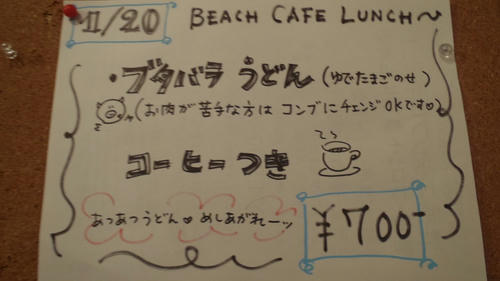 1/20
BEACH CAFE LUNCH～
・ブタバラ うどん (ゆでたまごのせ)
(お肉が苦手な方は コンブにチェンジOKです♡)
コーヒーつき
あつあつうどん♡ めしあがれーッ
¥700-